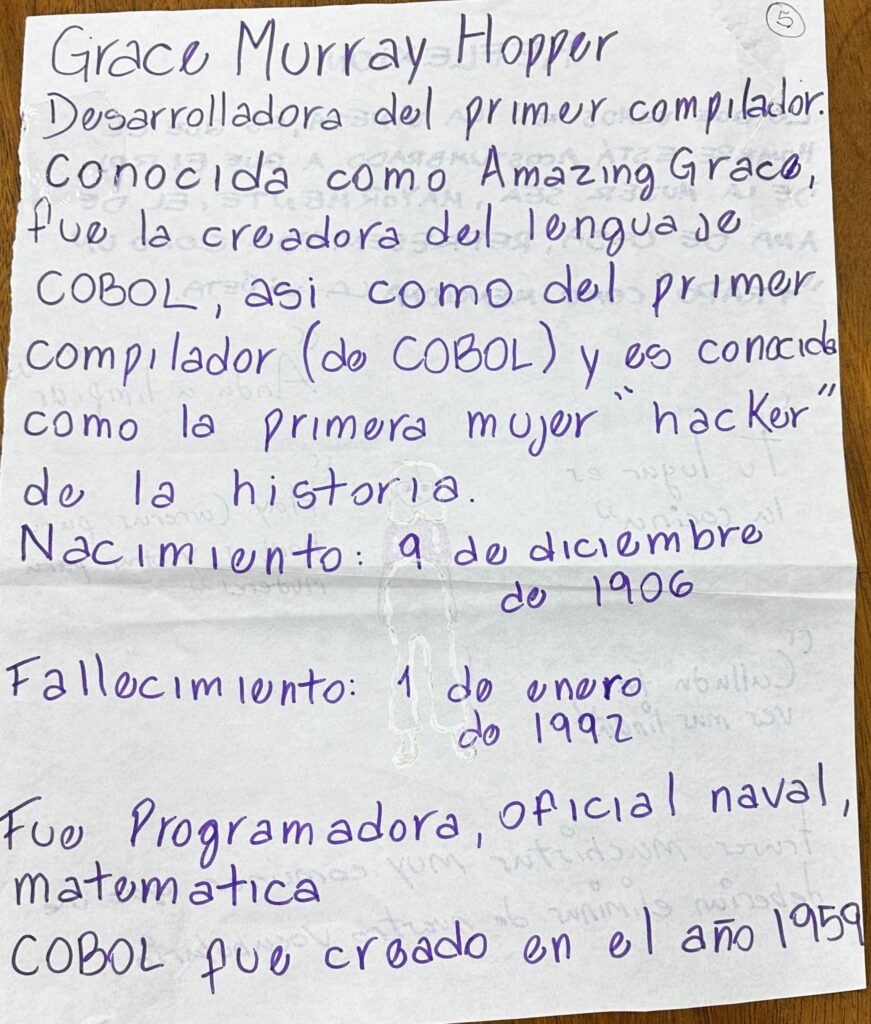 5
Grace Murray Hopper
Desarrolladora del primer compilador.
Conocida como Amazing Grace,
fue la creadora del lenguaje
COBOL, asi como del primer
compilador (de COBOL) y es conocida
como la primera mujer "hacker"
de la historia.
Nacimiento: 9 de diciembre
de 1906
Fallecimiento: 1 de enero
de 1992
Fue Programadora, oficial naval,
matematica
COBOL fue creado en el año 1959